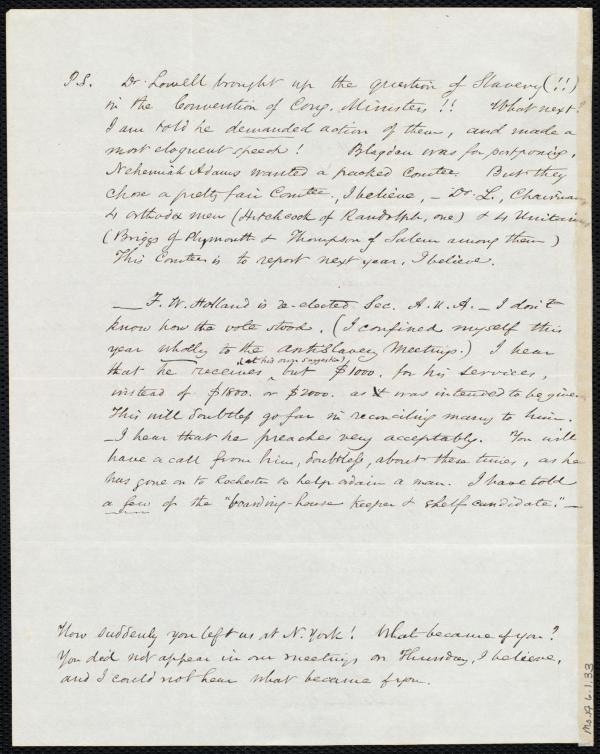 P.S. Dr. Lowell brought up the question of Slavery (!!)
in the Convention of Cong. Ministers!! What next?
I am told he demanded action of them, and made a
most eloquent speech! Blagden was for postponing.
Nehemiah Adams wanted a packed Comtee. But they
chose a pretty fair Comtee., I believe, – Dr. L., Chairman,
4 orthodox men (Hitchcock of Randolph, one) & 4 Unitarians
(Briggs of Plymouth & Thompson of Salem among them)
This Comtee is to report next year, I believe.
— F. W. Holland is re-elected Sec. A. U. A. – I don't
know how the vote stood. (I confined myself this
year wholly to the AntiSlavery Meetings.) I hear
that he receives (at his own suggestion) but $1000. for his services,
instead of $1800. or $2000. as it was intended to be given.
This will doubtless go far in reconciling many to him.
– I hear that he preaches very acceptably. You will
have a call from him, doubtless, about these times, as he
has gone on to Rochester to help ordain a man. I have told
a few of the "boarding-house keeper & shelf candidate." –
How suddenly you left us at N. York! What became of you?
You did not appear in our meetings on Thursday, I believe,
and I could not hear what became of you.
Ms. A 6.1.33